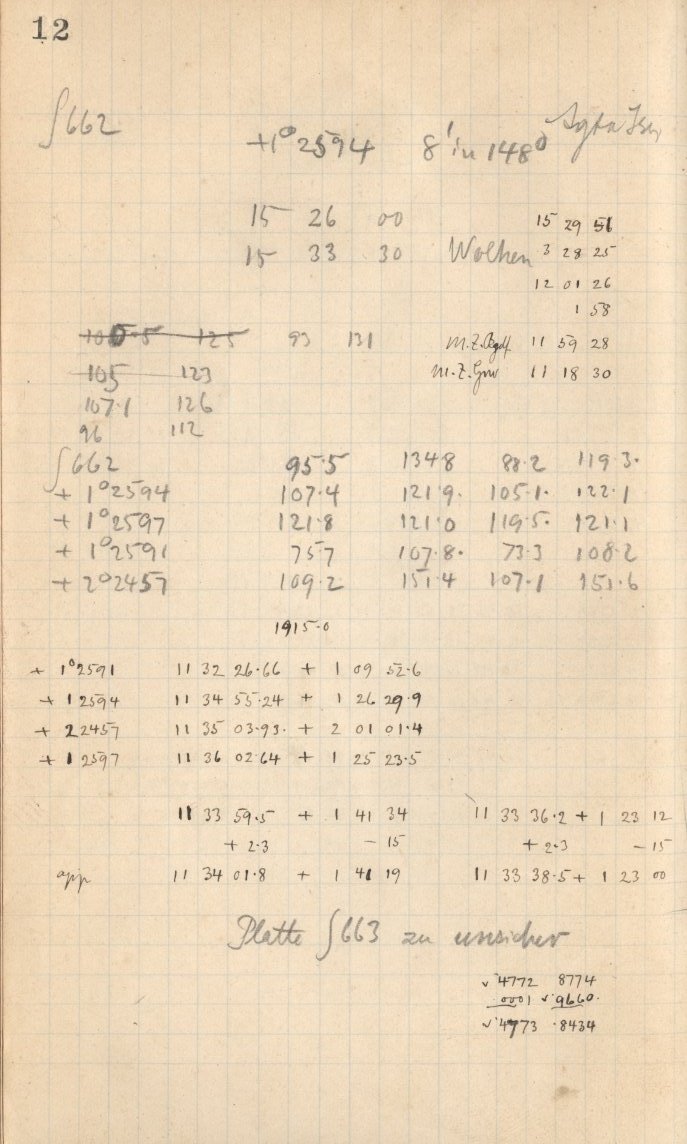 12
∫662 +1° 2594 8' in 148°
15 26 00 15 29 51
15 33 30 Wolken 3 28 25
12 01 26
1 58
125 93 131 M.Z.Bgdf 11 59 28
105 123 M.Z.Grw 11 18 30
107.1 126
96 112
∫662 95.5 134.8 88.2 119.3.
+ 1° 2594 107.4 121.9. 105.1. 122.1
+ 1° 2597 121.8 121.0 119.5. 121.1
+ 1° 2591 75.7 107.8. 73.3 108.2
+ 2° 2457 109.2 151.4 107.1 151.6
1915.0
+ 1° 2591 11 32 26.66 + 1 09 52.6
+ 1 2594 11 34 55.24 + 1 26 29.9
+ 2 2457 11 35 03.93. + 2 01 01.4
+ 1 2597 11 36 02.64 + 1 25 23.5
11 33 59.5 + 1 41 34 11 33 36.2 + 1 23 12
+ 2.3 - 15 + 2.3 - 15
app 11 34 01.8 + 1 41 19 11 33 38.5 + 1 23 00
Platte ∫663 zu unsicher
√.4772 8774
.0001 √.9660.
√.4773 .8434